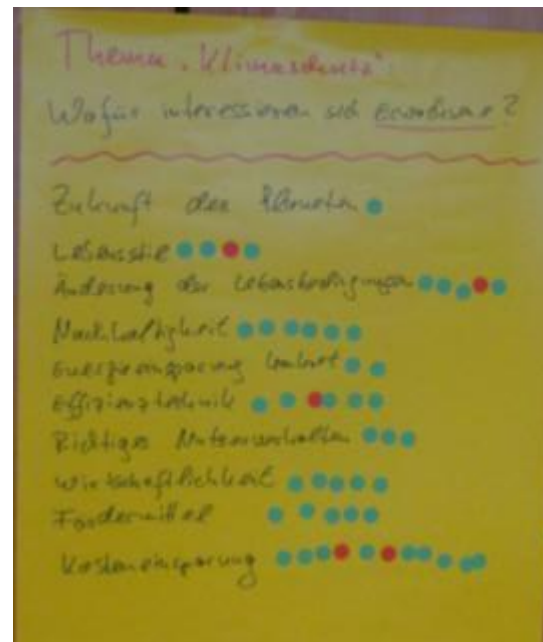 Thema "Klimaschutz":
Wofür interessieren sich Erwachsene?
Zukunft des Planeten
Lebensstil
Änderung der Lebensbedingungen
Nachhaltigkeit
Energieeinsparung konkret
Effizienztechnik
Richtiges Nutzerverhalten
Wirtschaftlichkeit
Fördermittel
Kosteneinsparung